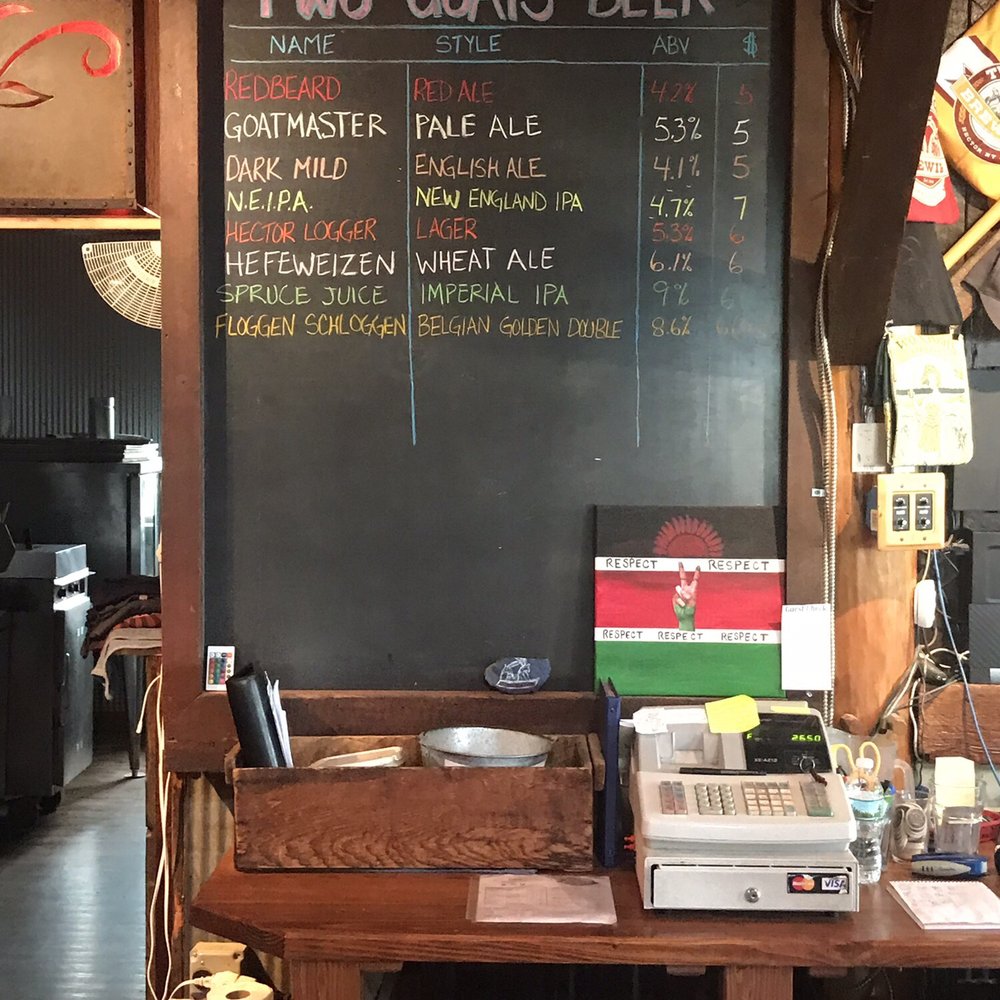 TWO GOATS BEER
NAME STYLE ABV $
REDBEARD RED ALE 4.2% 5
GOATMASTER PALE ALE 5.3% 5
DARK MILD ENGLISH ALE 4.1% 5
N.E.I.P.A. NEW ENGLAND IPA 4.7% 7
HECTOR LOGGER LAGER 5.3% 6
HEFEWEIZEN WHEAT ALE 6.1% 6
SPRUCE JUICE IMPERIAL IPA 9% 6
FLOGGEN SCHLOGGEN BELGIAN GOLDEN DOUBLE 8.6%
RESPECT RESPECT
RESPECT RESPECT RESPECT
Guest Check
26.50
XE-A212
MasterCard VISA